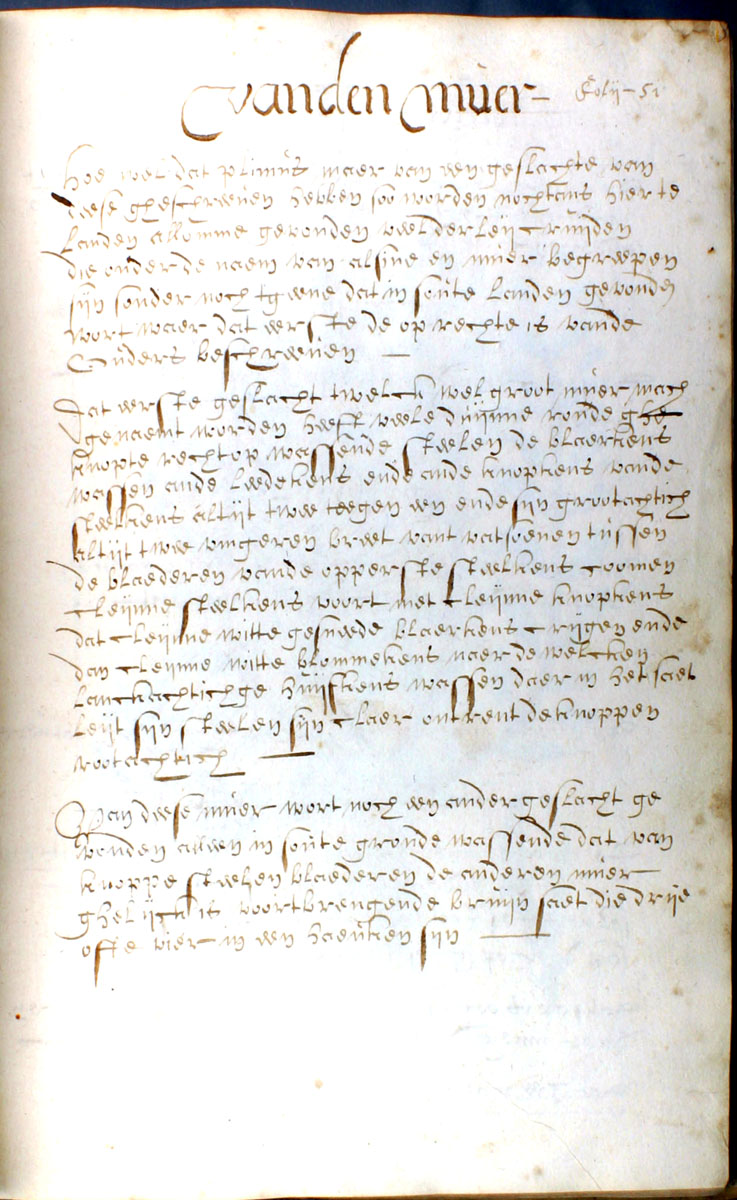 vanden muer – folij – 51
Hoe wel dat plinius maer van een geslachte van
dese gheschreven hebben soo worden nochtans hier te
landen allomme gevonden veelderleij cruijden
die onder de naem van alsine en muer begrepen
sijn sonder noch tgene dat in soute landen gevonden
wort waer dat eerste de oprechte is vande
Ouders beschreven —
Dat eerste geslacht twelck wel groot muer mach
genaemt worden heeft veele dunne ronde ghe
knopte rechtop wassende steelen de blaerkens
wassen ande ledekens ende ande knopkens vande
steelkens altijt twee tegen een ende sijn grootachtich
altijt twee vingeren breet vant vatsoenen tussen
de blaederen vande opperste steelkens coomen
cleijnne steelkens voort met cleijnne knopkens
dat cleijnne witte gesneede blaerkens crijgen ende
dan cleijnne witte blommekens naer de welcken
lanckachtichge huijskens wassen daer in het saet
leijt sijn steelen sijn claer ontrent de knoppen
rootachtich —
Van deese muer wort noch een ander geslacht ge
vonden alleen in soute gronde wassende dat van
knoppe steelen blaederen de anderen muer
ghelijck is voortbrengende bruijn saet die drije
offe vier in een haeuken sijn —